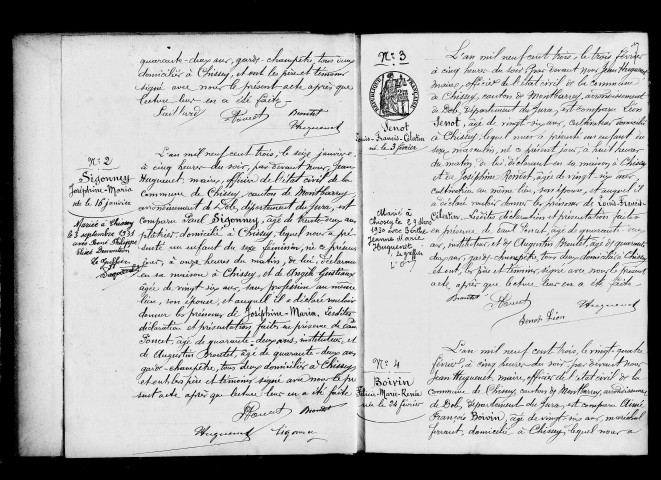 quarante-deux ans, garde-champêtre, tous deux
domiciliés à Chissey, et ont les père et témoins
signé avec nous le présent acte après que
lecture leur en a été faite.
Huguenet
N° 2
Sigonney
Joséphine-Maria
née le 16 janvier
Mariée à Chissey
le 3 septembre 1931
avec René Philippe
L'an mil neuf cent trois, le seize janvier,
à cinq heures du soir, par devant nous, Jean
Huguenet, maire, officier de l'état civil de la
Commune de Chissey, canton de Montbarrey
arrondissement de Dole, département du Jura, est
comparu Paul Sigonney, âgé de trente-deux ans
domicilié à Chissey, lequel nous a pré-
senté un enfant du sexe féminin, né ce présent
jour, à onze heures du matin, de lui, déclarant
en sa maison à Chissey, et de Angèle
âgée de vingt-six ans, sans profession au même
lieu, son épouse, et auquel il a déclaré vouloir
donner les prénoms de Joséphine-Maria. Lesdites
déclaration et présentation faites en présence de
Poncet, âgé de quarante-deux ans, instituteur, et
de Augustin Broutet, âgé de quarante-deux ans
garde-champêtre, tous deux domiciliés à Chissey
et ont les père et témoins signé avec nous le pré-
sent acte après que lecture leur en a été faite
Poncet Broutet
Huguenet Sigonney
N° 3
RÉPUBLIQUE FRANÇAISE
Jenot
Louis-Francis-Célestin
né le 3 février
Marié à
Chissey le 29
1930 avec
Jeanne Marie
Huguenet
L'an mil neuf cent trois, le trois février
à cinq heures du soir, par devant nous Jean Huguenet
maire, officier de l'état civil de la commune
de Chissey, canton de Montbarrey, arrondissement
de Dole, département du Jura, est comparu Léon
Jenot, âgé de vingt-six ans, cultivateur, domicilié
à Chissey, lequel nous a présenté un enfant du
sexe masculin, né ce présent jour, à huit heures
du matin, de lui, déclarant en sa maison à Chissey
et de Joséphine Poncet, âgée de vingt-six ans
au même lieu, son épouse, et auquel il a
déclaré vouloir donner les prénoms de Louis-Francis-
Célestin. Lesdites déclaration et présentation faites
en présence de Poncet, âgé de quarante-deux
ans, instituteur, et de Augustin Broutet, âgé de quarante-deux
ans, garde-champêtre, tous deux domiciliés à Chissey
et ont, les père et témoins signé avec nous le présent
acte, après que lecture leur en a été faite
Broutet Poncet Huguenet
Jenot Léon
N° 4
Boivin
Marie-Renée
née le 24 février
L'an mil neuf cent trois, le vingt-quatre
février, à cinq heures du soir, par devant nous
Jean Huguenet, maire, officier de l'état civil de la
Commune de Chissey, canton de Montbarrey, arrondissement
de Dole, département du Jura, est comparu
François Boivin, âgé de vingt-six ans, maréchal
ferrant, domicilié à Chissey, lequel nous a